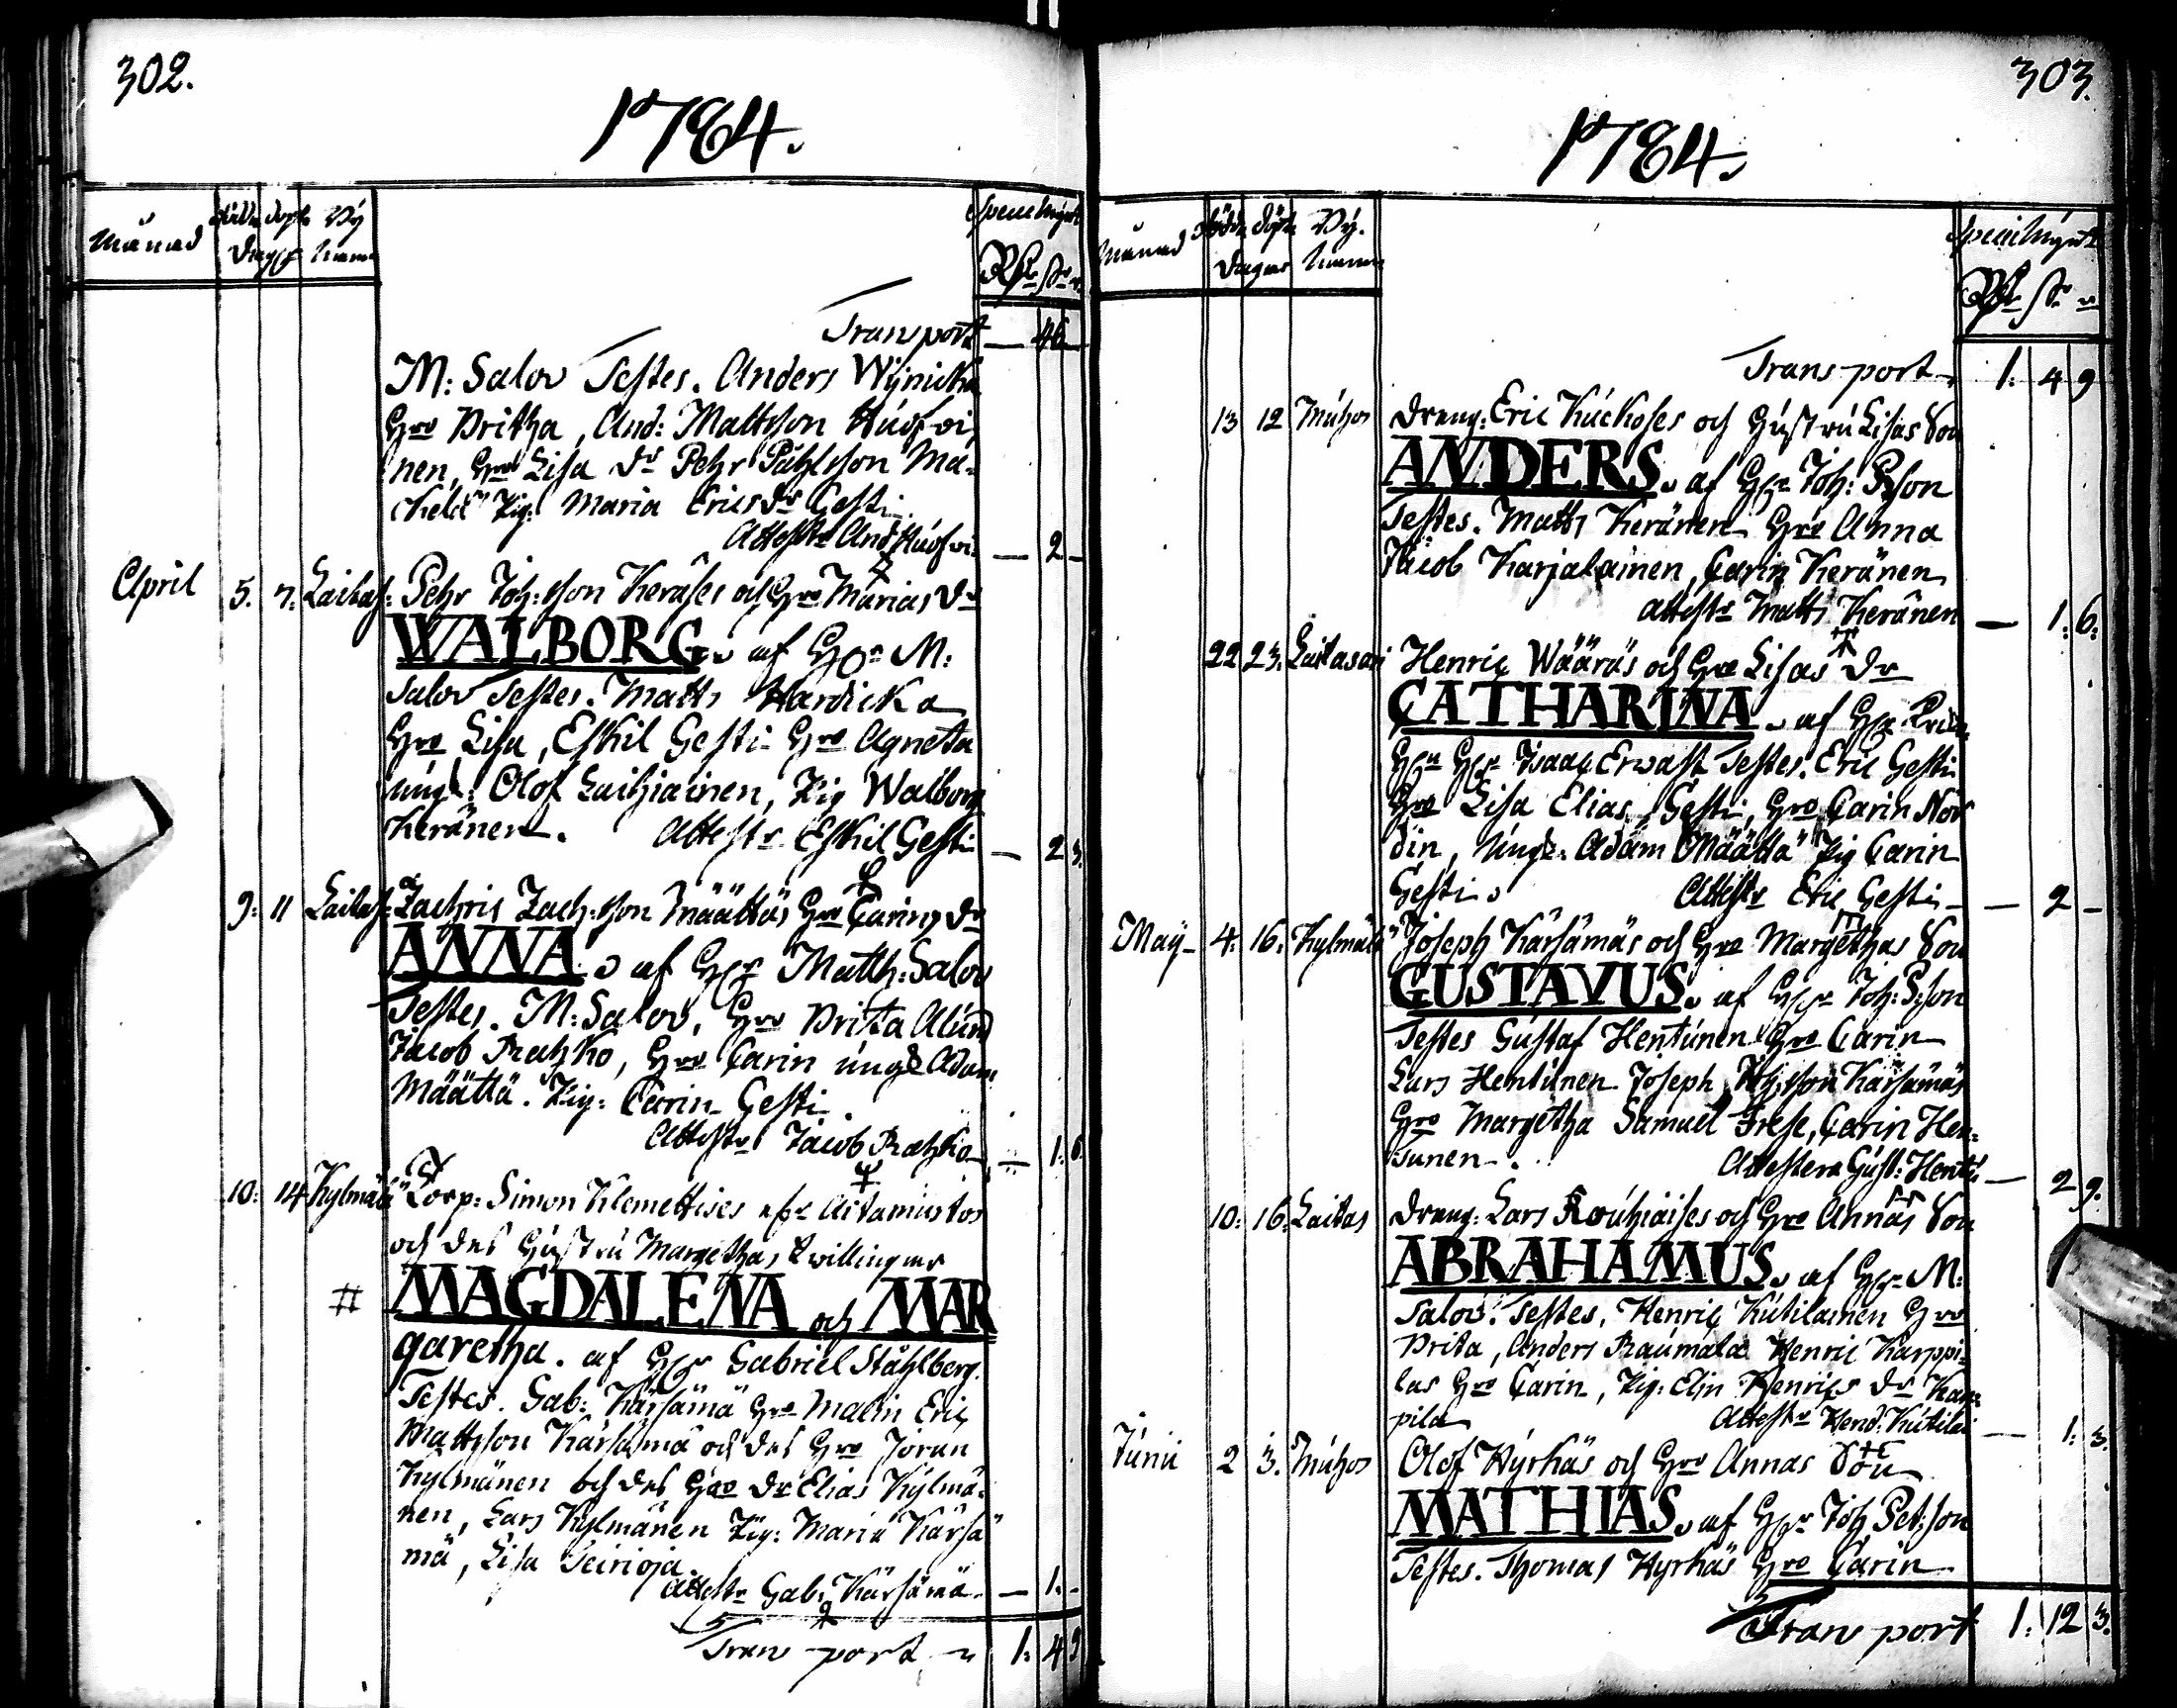 302.
1784.
Månad Född Döpt Bÿ
Dagar Namn
Specie Mÿnt
Rd s. r.
Transport — 46
M: Salov Testes. Anders Wÿnicka
Hro Britha, And: Mattsson Huofvi
nen, Hro Lisa Dr Pehr Påhlsson Ma-
Pig: Maria Ericsdr Gesti.
Attestr And Huofvi — 2 —
April 5. 7. Laitas: Pehr Joh:sson Keräses och Hro Marias Dr
WALBORG. af Hr M:
Salov Testes. Matts Hardicka
Hro Lisa, Eskil Gesti Hro Agneta
ungk: Olof Laihiainen, Pig Walborg
Keränen. Attestr Eskil Gesti — 2 3.
9: 11 Laitas: Zachris Zach:sson Määttäs Hro Carins Dr
ANNA. af Hr Matth: Salov
Testes. M: Salov, Hro Brita Alund
Jacob Rahko, Hro Carin ungk Adam
Määttä. Pig: Carin Gesti.
Attestr Jacob Rahko — 1: 6
10: 14 Kylmälä Corp: Simon Klemettises
och des Hustru Margethas twillingar
# MAGDALENA och MAR
garetha. af Hr Gabriel Ståhlberg.
Testes. Gab: Kärsämä Hro Malin Eric
Mattsson Kärsämä och des Hro Joran
Kylmänen och des Hro Dr Elias Kylmä-
nen, Lars Kylmänen Pig: Maria Kärsä
mä, Lisa Teirioja.
Attestr Gab: Kärsämä — 1. -
Transport 1: 4 9
303.
1784.
Månad Född Döpt Bÿ.
Dagar Namn
Specie Mÿnt
Rd s. r
Transport 1: 4 9
13 12 Muhos Dräng: Eric Kuckoses och Hustru Lisas Son
ANDERS. af Hr Joh: P:son
Testes. Matts Keränen Hro Anna
Jacob Karjalainen, Carin Keränen
attestr Matts Keränen — 1: 6:
22 23. Laitasari Henric Wääräs och Hro Lisas Dr
CATHARINA. af
Hr Isaac Erwast Testes. Eric Gesti
Hro Lisa Elias Gesti, Hro Carin Nor
din, Ungk: Adam Määttä Pig Carin
Gesti. Attestr Eric Gesti — 2 —
Maÿ 4: 16: Kylmälä Joseph Kärsämäs och Hro Margethas Son
GUSTAVUS. af Hr Joh: P:son
Testes Gustaf Hentunen Hro Carin
Lars Hentunen Joseph Kärsämäs
Hro Margetha Samuel Frese, Carin Hen-
tunen. Attestera Gust: Hentu — 2 9.
10: 16: Laitas Dräng: Lars Rouhiaises och Hro Annas Son
ABRAHAMUS. af Hr M:
Salov. Testes, Henric Kutilainen Hro
Brita, Anders Raumala Henric Karppi-
las Hro Carin, Pig: Elin Henrics dr Karp-
pila Attestr Hend: Kutilai — 1: 3.
Junii 2 3. Muhos Olof Hyrkäs och Hro Annas Son
MATHIAS. af Hr Joh Pet:son
Testes. Thomas Hyrkäs Hro Carin
Transport 1: 12 3.